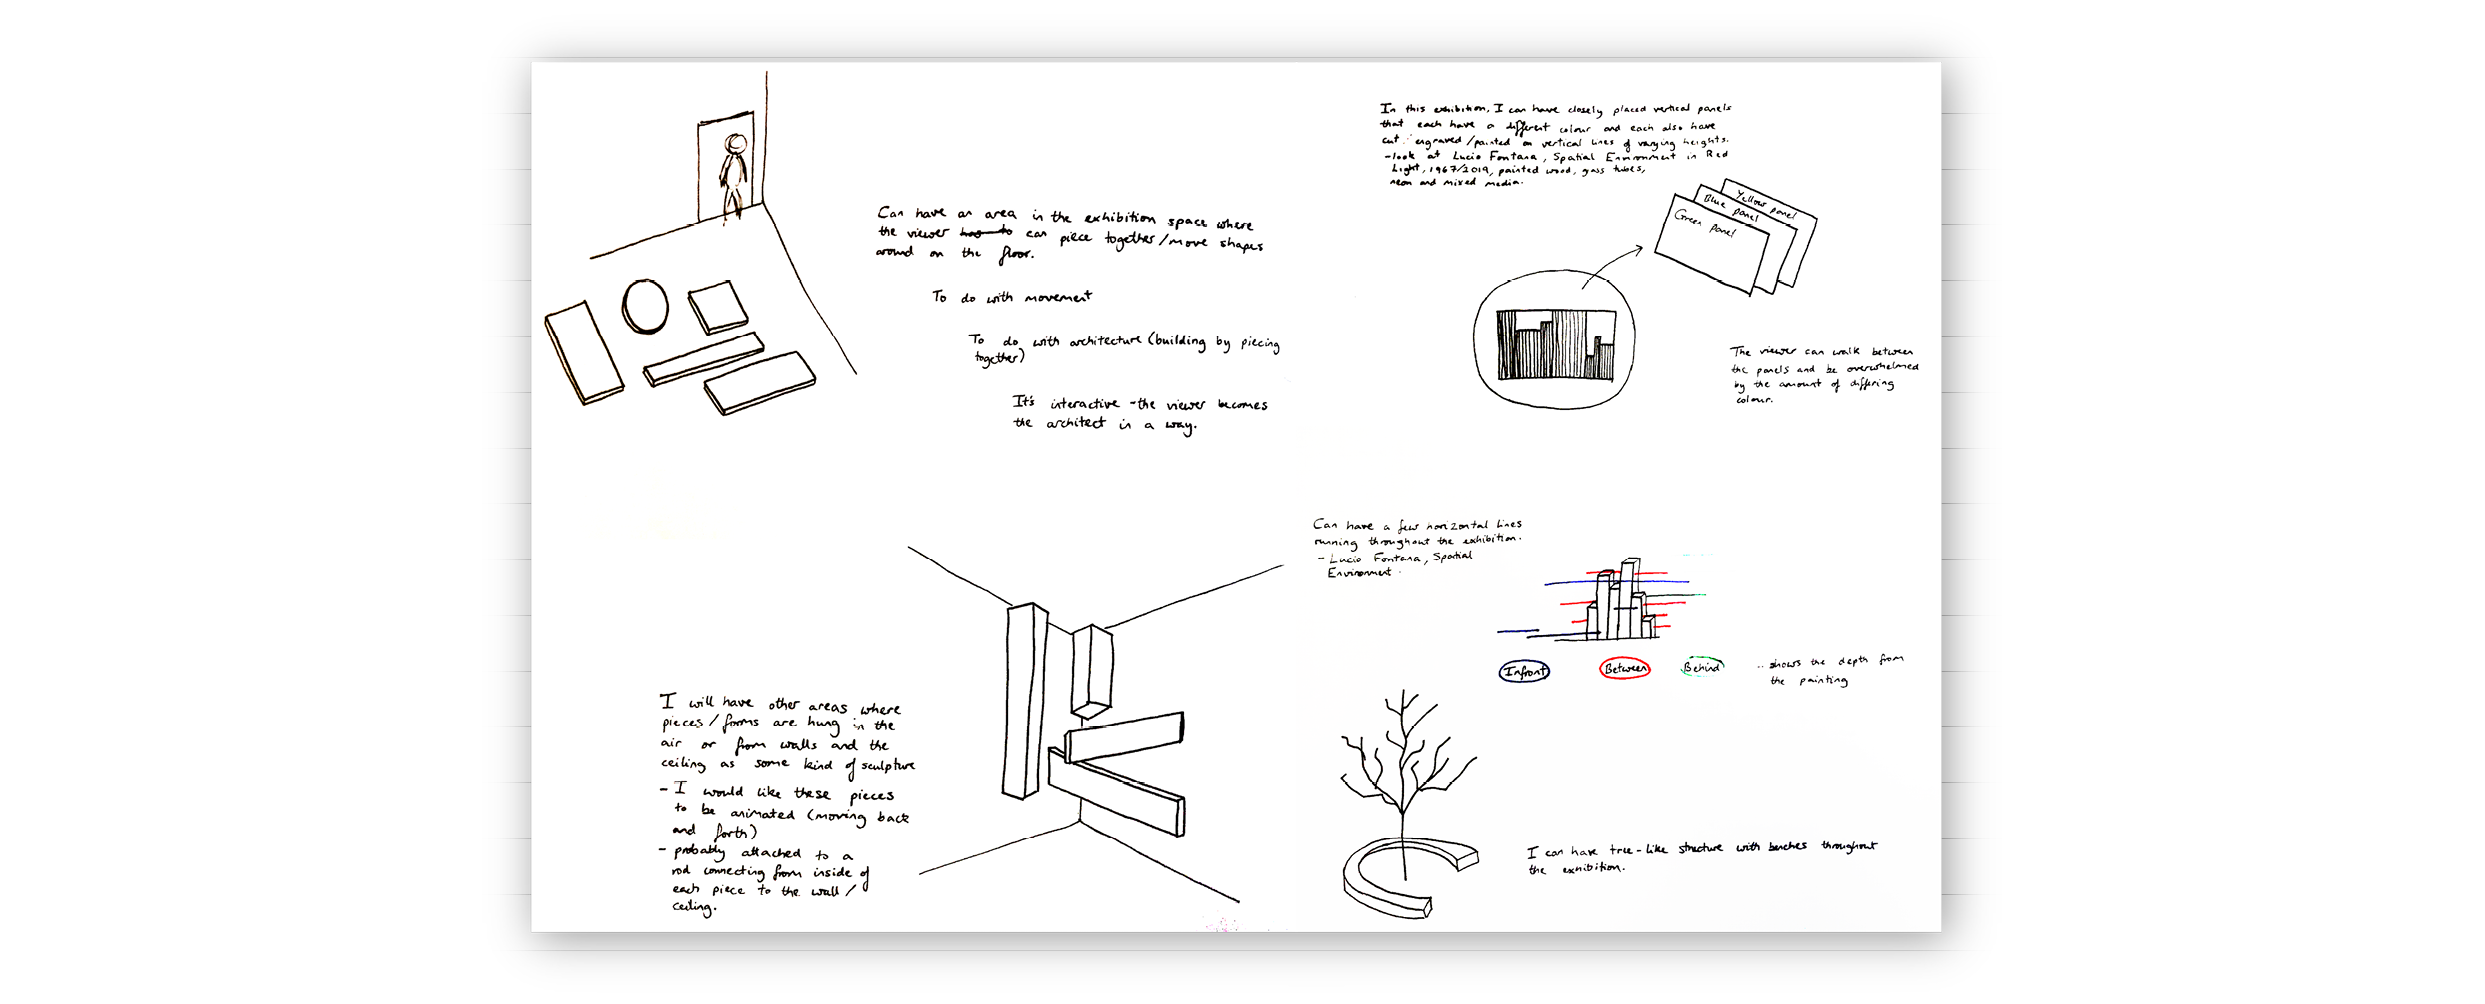 Can have an area in the exhibition space where
the viewer has to can piece together/move shapes
around on the floor.
To do with movement
To do with architecture (building by piecing
together)
It's interactive - the viewer becomes
the architect in a way.
In this exhibition, I can have closely placed vertical panels
that each have a different colour and each also have
cut / engraved/painted on vertical lines of varying heights.
- look at Lucio Fontana, Spatial Environment in Red
Light, 1967/2019, painted wood, gass tubes,
neon and mixed media.
Yellow panel
Blue panel
Green panel
The viewer can walk between
the panels and be overwhelmed
by the amount of differing
colour.
I will have other areas where
pieces/forms are hung in the
air or from walls and the
ceiling as some kind of sculpture
- I would like these pieces
to be animated (moving back
and forth)
- probably attached to a
rod connecting from inside of
each piece to the wall/
ceiling.
Can have a few horizontal lines
running throughout the exhibition.
- Lucio Fontana, Spatial
Environment.
Infront
Between
Behind
.. shows the depth from
the painting
I can have tree-like structure with benches throughout
the exhibition.